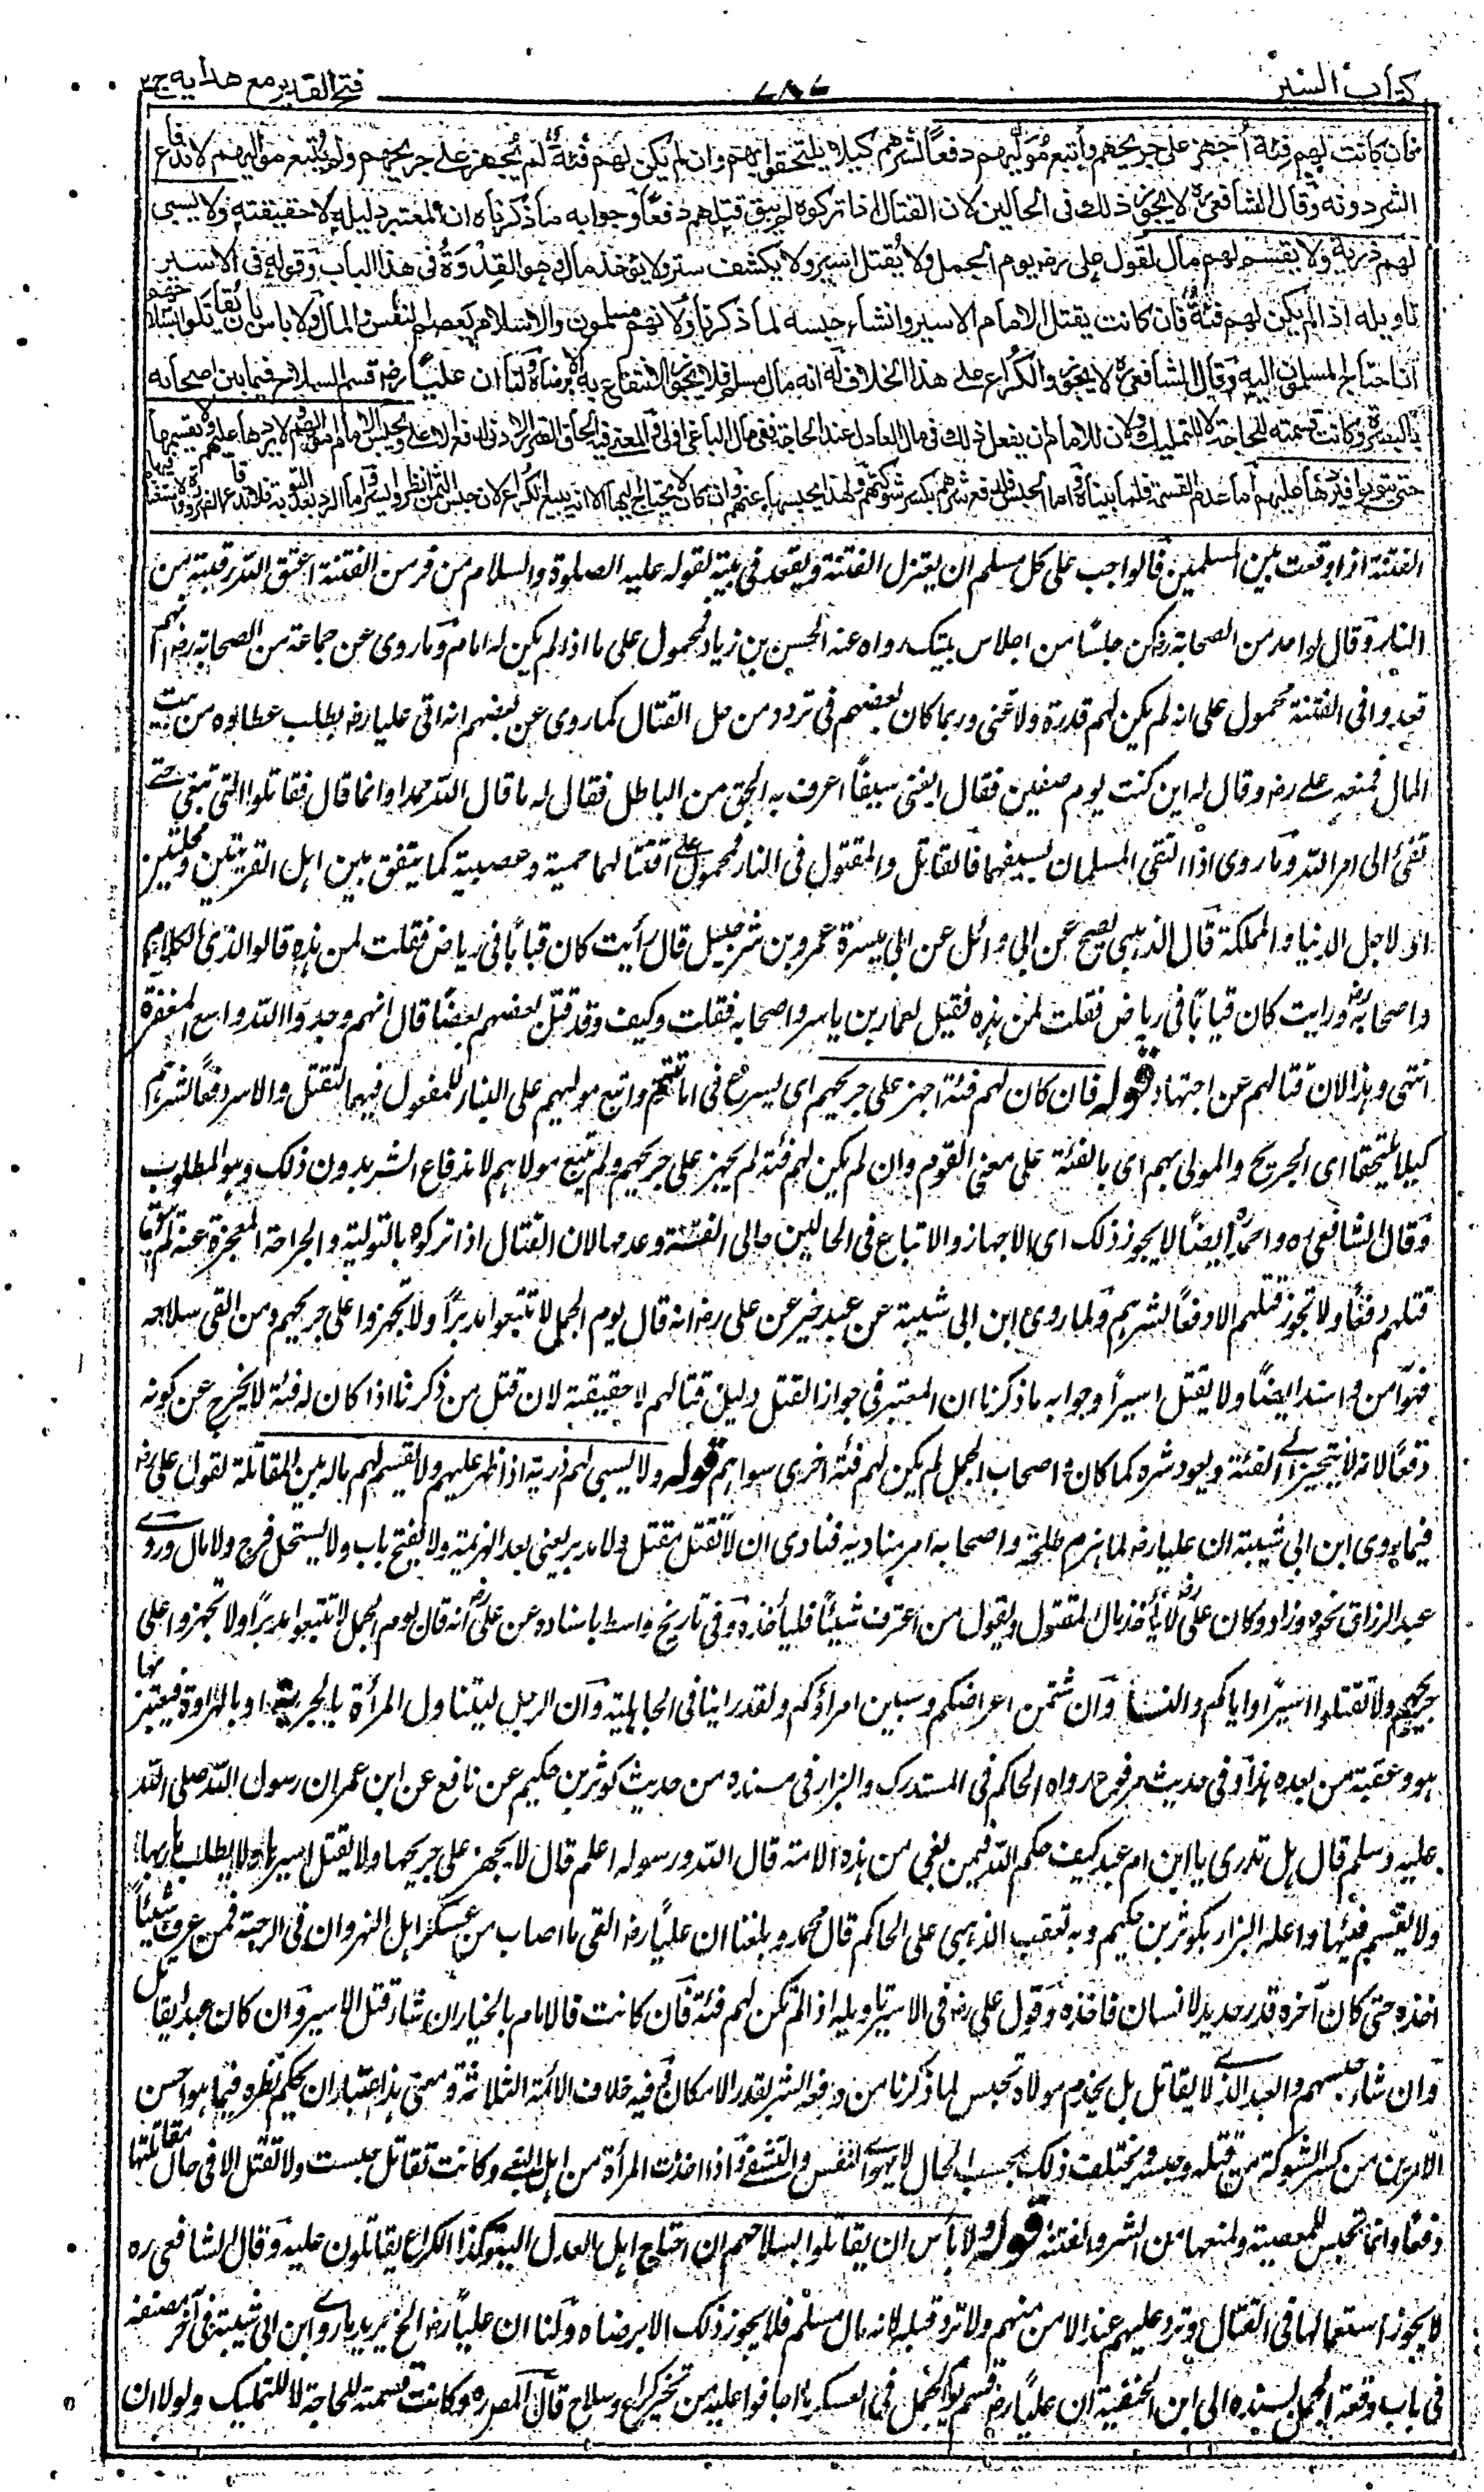 كتاب السير ٧٨٧ فتح القدير مع هدايه ج٢
فان كانت لهم فئة أجهز على جريحهم وأتبع موليهم دفعاً لشرهم كيلا يلتحقوا بهم وان لم يكن لهم فئة لم يجهز على جريحهم ولم يتبع موليهم لاندفاع
الشر دونه وقال الشافعي ره لا يجوز ذلك في الحالين لان القتال اذا تركوه لم يبق قتلهم دفعاً وجوابه ما ذكرناه ان المعتبر دليله لا حقيقته ولا يسبى
لهم ذرية ولا يقسم لهم مال لقول علي رضـ يوم الجمل ولا يقتل اسير ولا يكشف ستر ولا يؤخذ مال وهو القدوة في هذا الباب وقوله في الاسير
تاويله اذا لم يكن لهم فئة فان كانت يقتل الامام الاسير وان شاء حبسه لما ذكرنا ولانهم مسلمون والاسلام يعصم النفس والمال ولا باس بان يقاتلوا بسلاحهم
ان احتاج المسلمون اليه وقال الشافعي ره لا يجوز والكراع على هذا الخلاف له انه مال مسلم فلا يجوز الانتفاع به الا برضاه ولنا ان علياً رضـ قسم السلاح فيما بين اصحابه
بالبصرة وكانت قسمته للحاجة لا للتمليك ولان للامام ان يفعل ذلك في مال العادل عند الحاجة ففي مال الباغي اولى والمعنى فيه الحاق الضرر الادنى لدفع الاعلى ويحبس الامام اموالهم لا يردها عليهم ولا يقسمها
حتى يتوبوا فيردها عليهم أما عدم القسمة فلما بيناه واما الحبس فلدفع شرهم بكسر شوكتهم ولهذا يحبسها عنهم وان كان لا يحتاج اليها الا انه يبيع الكراع لان حبس الثمن انظر وايسر واما الرد بعد التوبة فلاندفاع الضرورة ولا استغنام فيها
الفتنة اذا وقعت بين المسلمين فالواجب على كل مسلم ان يعتزل الفتنة ويقعد في بيته لقوله عليه الصلوة والسلام من فر من الفتنة اعتق الله رقبته من
النار وقال لواحد من الصحابة رضـ كن حلسًا من احلاس بيتك رواه عنه الحسن بن زياد فمحمول على ما اذا لم يكن له امام وما روى عن جماعة من الصحابة رضـ انهم
قعدوا في الفتنة محمول على انه لم يكن لهم قدرة ولا غنى وربما كان بعضهم في تردد من حل القتال كما روى عن بعضهم انه اتى عليا رضـ يطلب عطاءه من بيت
المال فمنعه على رضـ وقال له اين كنت يوم صفين فقال ابغنى سيفاً اعرف به الحق من الباطل فقال له ما قال الله هذا وانما قال فقاتلوا التي تبغي حتى
تفئ الى امر الله وما روى اذا التقى المسلمان بسيفيهما فالقاتل والمقتول في النار محمول على اقتتالهما حمية وعصبية كما يتفق بين اهل القريتين ومحلتين
او لاجل الدنيا والمملكة قال الذهبي يصح عن ابي وائل عن ابي ميسرة عمرو بن شرحبيل قال رأيت كان قباباً في رياض فقلت لمن هذه قالوا لذي الكلاع
واصحابه ورايت كان قباباً في رياض فقلت لمن هذه فقيل لعمار بن ياسر واصحابه فقلت وكيف وقد قتل بعضهم بعضًا قال انهم وجدوا الله واسع المغفرة
انتهى وهذا لان قتالهم عن اجتهاد قوله فان كان لهم فئة اجهز على جريحهم اى يسرع في اماتتهم واتبع موليهم على البناء للمفعول فيهما للقتل والاسر دفعًا لشرهم
كيلا يلتحقا اى الجريح والمولى بهم اى بالفئة على معنى القوم وان لم يكن لهم فئة لم يجهز على جريحهم ولم يتبع مولاهم لاندفاع الشر بدون ذلك وهو المطلوب
وقال الشافعي ره واحمد ره ايضًا لا يجوز ذلك اى الاجهاز والاتباع في الحالين حالى الفئة وعدمها لان القتال اذا تركوه بالتولية والجراحة المعجزة عنه لم يبق
قتلهم دفعًا ولا تجوز قتلهم الا دفعًا لشرهم ولما روى ابن ابي شيبة عن عبد خير عن على رضـ انه قال يوم الجمل لا تتبعوا مدبرًا ولا تجهزوا على جريحهم ومن القى سلاحه
فهو آمن واسند ايضًا ولا يقتل اسيرًا وجوابه ما ذكرنا ان المعتبر في جواز القتل دليل قتالهم لا حقيقته لان قتل من ذكرنا اذا كان له فئة لا يخرج عن كونه
دفعًا لانه لا يتحيز الى الفئة ويعود شره كما كان واصحاب الجمل لم يكن لهم فئة اخرى سواهم قوله ولا يسبى لهم ذرية اذا ظهر عليهم ولا يقسم لهم مال بين المقاتلة لقول على رضـ
فيما روى ابن ابي شيبة ان عليا رضـ لما هزم طلحة واصحابه امر مناديه فنادى ان لا يقتل مقبل ولا مدبر يعنى بعد الهزيمة ولا يفتح باب ولا يستحل فرج ولا مال وروى
عبد الرزاق نحوه وزاد وكان على رضـ لا يأخذ مال المقتول ويقول من اعترف شيئًا فليأخذه وفي تاريخ واسط باسناده عن على رضـ انه قال يوم الجمل لا تتبعوا مدبرًا ولا تجهزوا على
جريحهم ولا تقتلوا اسيرًا واياكم والنساء وان شتمن اعراضكم وسببن امراءكم ولقد رايتنا في الجاهلية وان الرجل ليتناول المرأة بالجريدة او بالهراوة فيعير بها
هو وعقبه من بعده هذا وفي حديث مرفوع رواه الحاكم في المستدرك والبزار في مسنده من حديث كوثر بن حكيم عن نافع عن ابن عمر ان رسول الله صلى الله
عليه وسلم قال هل تدرى يا ابن ام عبد كيف حكم الله فيمن بغى من هذه الامة قال الله ورسوله اعلم قال لا يجهز على جريحها ولا يقتل اسيرها ولا يطلب هاربها
ولا يقسم فيئها واعله البزار بكوثر بن حكيم وبه تعقب الذهبي على الحاكم قال محمد وبلغنا ان عليًا رضـ القى ما اصاب من عسكر اهل النهروان في الرحبة فمن عرف شيئًا
اخذه حتى كان آخره قدر حديد لانسان فاخذه وقول علي رضـ في الاسير تاويله اذا لم تكن لهم فئة فان كانت فالامام بالخيار ان شاء قتل الاسير وان كان عبدا يقاتل
وان شاء حبسهم والعبد الذى لا يقاتل بل يخدم مولاه تحبس لما ذكرنا من دفع الشر بقدر الامكان وفيه خلاف الائمة الثلاثة ومعنى هذا اعتبار ان يحكم نظره فيما هو احسن
الامرين من كسر الشوكة من قتله وحبسه ويختلف ذلك بحسب الحال لا بهوى النفس والتشفي واذا اخذت المرأة من اهل البغي وكانت تقاتل حبست ولا تقتل الا في حال مقاتلتها
دفعًا وانما تحبس للمعصية ولمنعها من الشر والفتنة قوله ولا بأس ان يقاتلوا بسلاحهم ان احتاج اهل العدل اليه وكذا الكراع يقاتلون عليه وقال الشافعي ره
لا يجوز استعمالها في القتال وترد عليهم عند الامن منهم ولا ترد قبله لانه مال مسلم فلا يجوز ذلك الا برضاه ولنا ان عليًا رضـ الخ يريد ما روى ابن ابي شيبة في آخر مصنفه
في باب وقعة الجمل بسنده الى ابن الحنفية ان عليًا رضـ قسم يوم الجمل في العسكر ما اجافوا عليه من كراع وسلاح قال المصـ ره وكانت قسمته للحاجة لا للتمليك ولولا ان